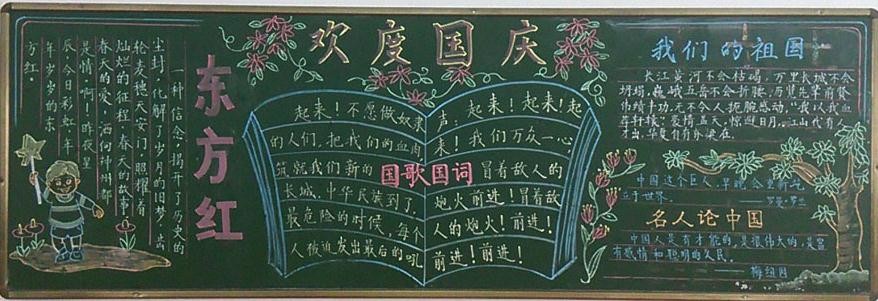 欢度国庆
东方红
一种信念,揭开了历史的
尘封,化解了岁月的旧梦,高
轮麦穗天安门,照耀着
灿烂的征程,春天的故事
春天的爱,洒向神州都
是情啊!昨夜星
辰,今日彩虹,年
年岁岁的东
方红。
国歌国词
起来!不愿做奴隶
的人们,把我们的血肉,
筑就我们新的
长城,中华民族到了,
最危险的时候,每个
人被迫发出最后的吼
声:起来!起来!起
来!我们万众一心
冒着敌人的
炮火前进!冒着敌
人的炮火!前进!
前进!前进!
我们的祖国
长江黄河不会枯竭,万里长城不会
坍塌,巍峨五岳不会折腰,历览先辈前贤
伟绩丰功,无不令人扼腕感动,“我以我血
荐轩辕”豪情盖天,惊避日月。江山代有人
才出,华夏自有
中国这个巨人,早晚会
立于世界。
——罗曼·罗兰
名人论中国
中国人是有才能的,是很伟大的,是富
有感情和聪明的人民。
——梅纽因